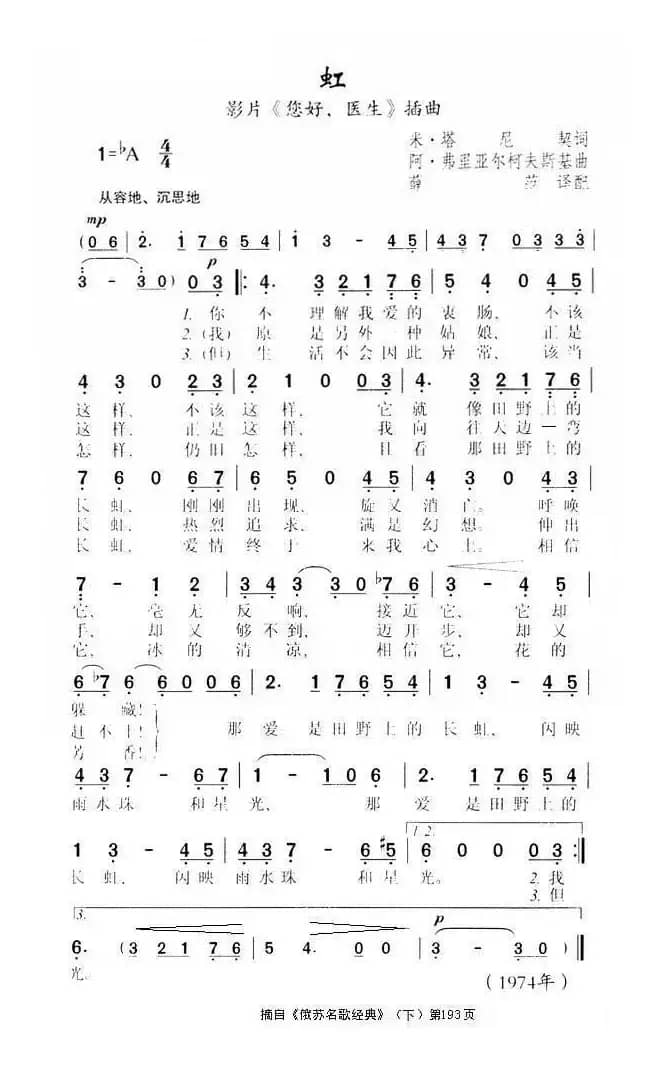 虹
影片《您好、医生》插曲
1=♭A 4/4
米·塔尼契词
阿·弗里亚尔柯夫斯基曲
薛范译配
从容地、沉思地
mp
(0 6 | 2. 1 7 6 5 4 | 1 3 - 4 5 | 4 3 7 0 3 3 3 |
p
3 - 3 0) 0 3 |: 4. 3 2 1 7 6 | 5 4 0 4 5 |
1. 你 不 理解我爱的 衷 肠、 不该
2.(我) 原 是另外一种 姑 娘、 正是
3.(但) 生 活不会因此 异 常、 该当
4 3 0 2 3 | 2 1 0 0 3 | 4. 3 2 1 7 6 |
这 样、 不该 这 样、 它 就 像田野上的
这 样、 正是 这 样、 我 向 往天边一弯
怎 样、 仍旧 怎 样、 且 看 那田野上的
7 6 0 6 7 | 6 5 0 4 5 | 4 3 0 4 3 |
长 虹、 刚刚 出 现、 旋又 消 亡。 呼唤
长 虹、 热烈 追 求、 满是 幻 想。 伸出
长 虹、 爱情 终 于 来我 心 上。 相信
7 - 1 2 | 3 4 3 3 0 ♭7 6 | 3 - 4 5 |
它、 毫 无 反 响、 接近 它、 它 却
手、 却 又 够 不 到、 迈开 步、 却 又
它、 冰 的 清 凉、 相信 它、 花 的
6 ♭7 6 6 0 0 0 6 | 2. 1 7 6 5 4 | 1 3 - 4 5 |
躲 藏!
赶 不 上! 那 爱 是田野上的 长 虹、 闪映
芳 香!
4 3 7 - 6 7 | 1 - 1 0 6 | 2. 1 7 6 5 4 |
雨水珠 和星 光、 那 爱 是田野上的
1.2.
1 3 - 4 5 | 4 3 7 - 6 ♯5 | 6 0 0 0 3 :|
长 虹、 闪映 雨水珠 和星 光。 2.我
3.但
3.
p
6. (3 2 1 7 6 | 5 4. 0 0 | 3 - 3 0) ‖
光。
(1974年)
摘自《俄苏名歌经典》（下）第193页